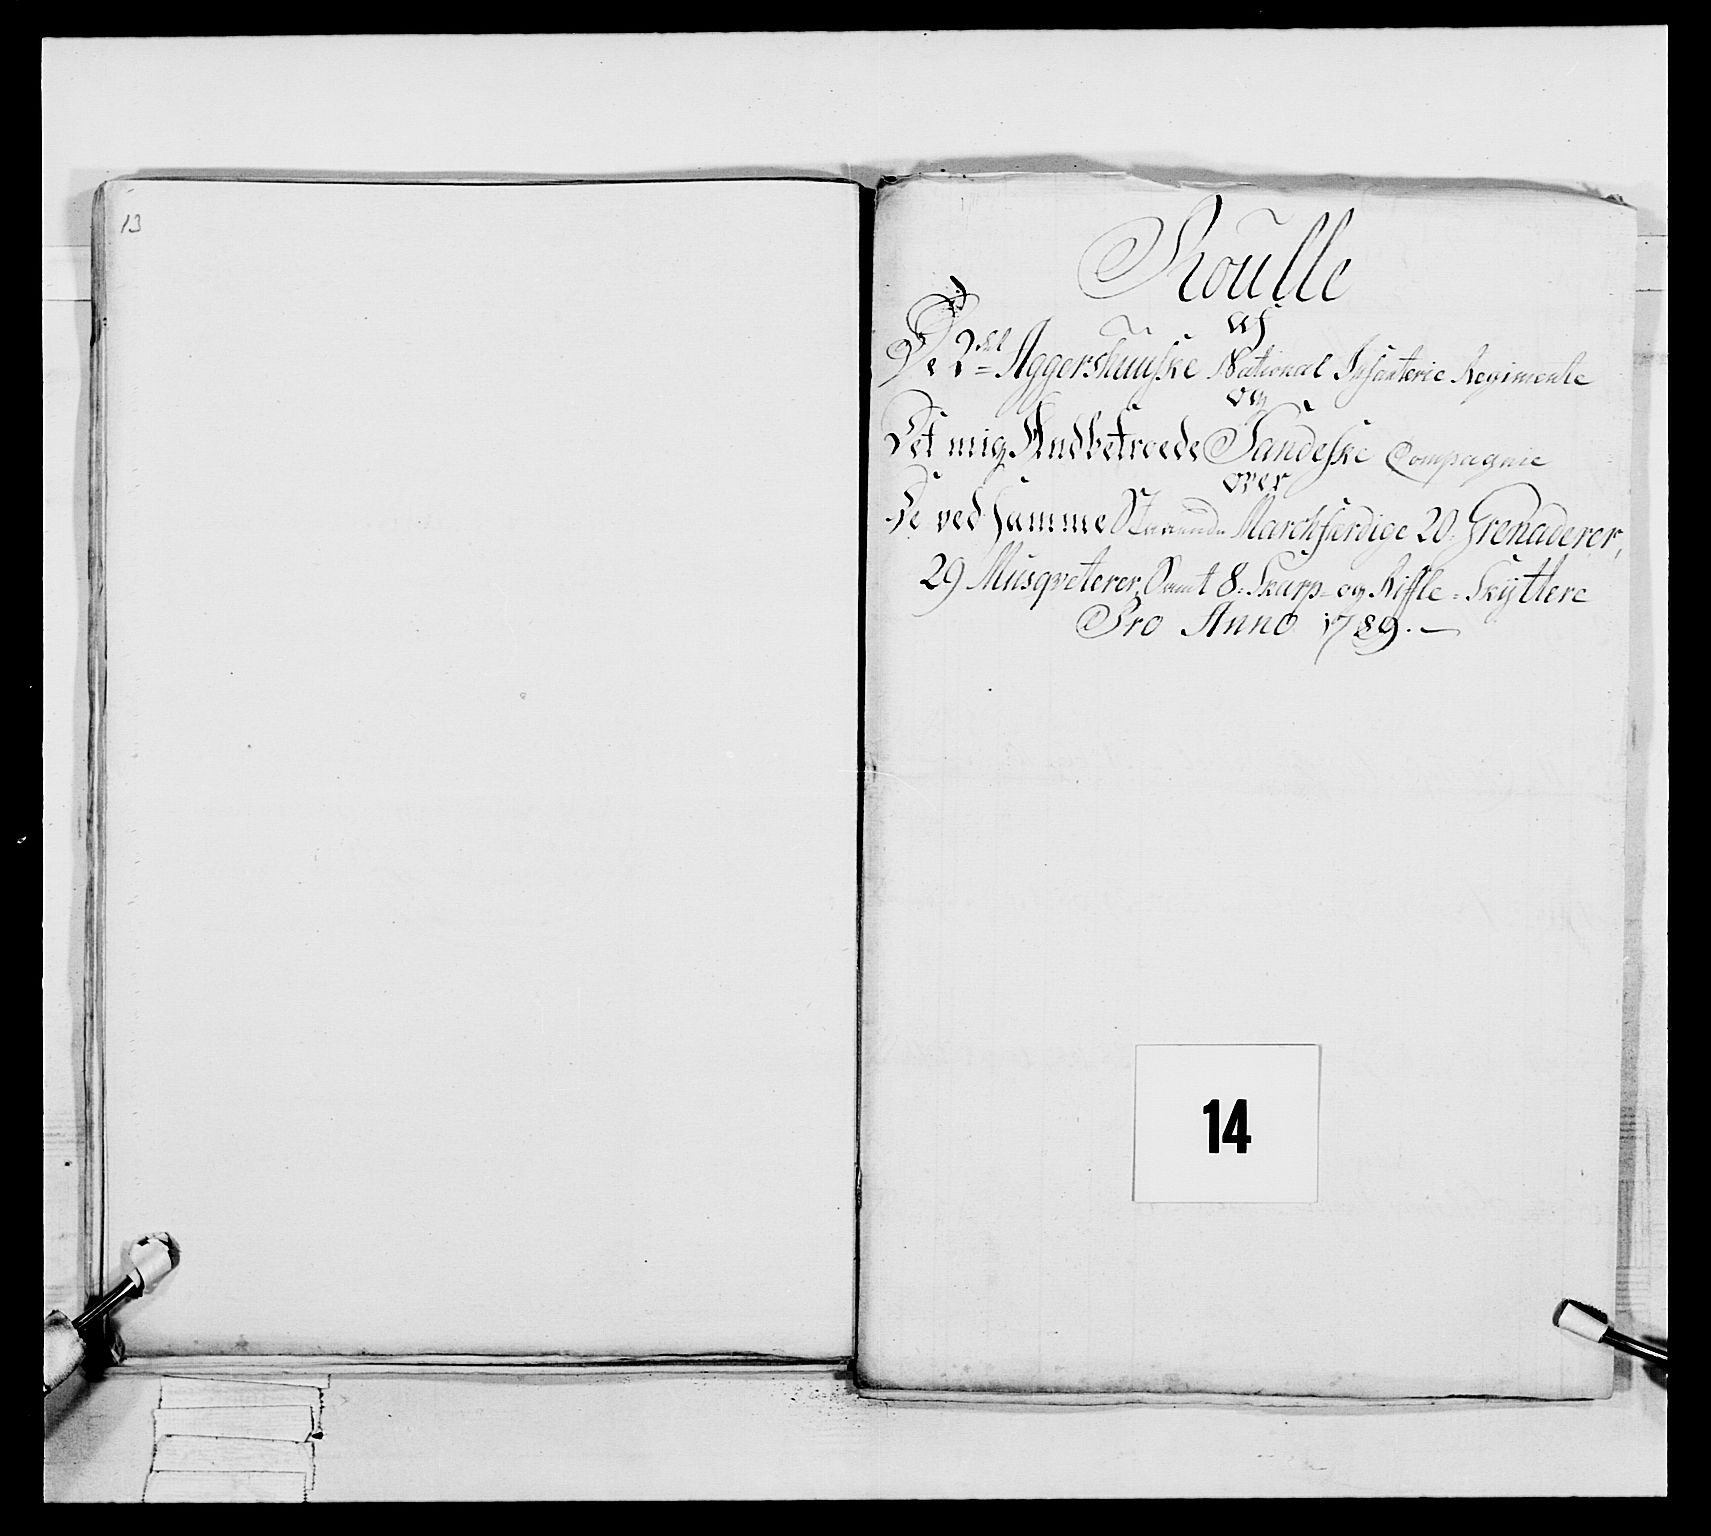 13
Roulle
af
De 2det Aggershuusske National Infanterie Regimente
og
Det mig Andbetroede Sandeske Compagnie
over
De ved Samme Staaende Marchfærdige 20. Grenaderer,
29 Musqveterer, Samt 8. Skarp- og Riffle-Skÿttere
Pro Anno 1789.
14